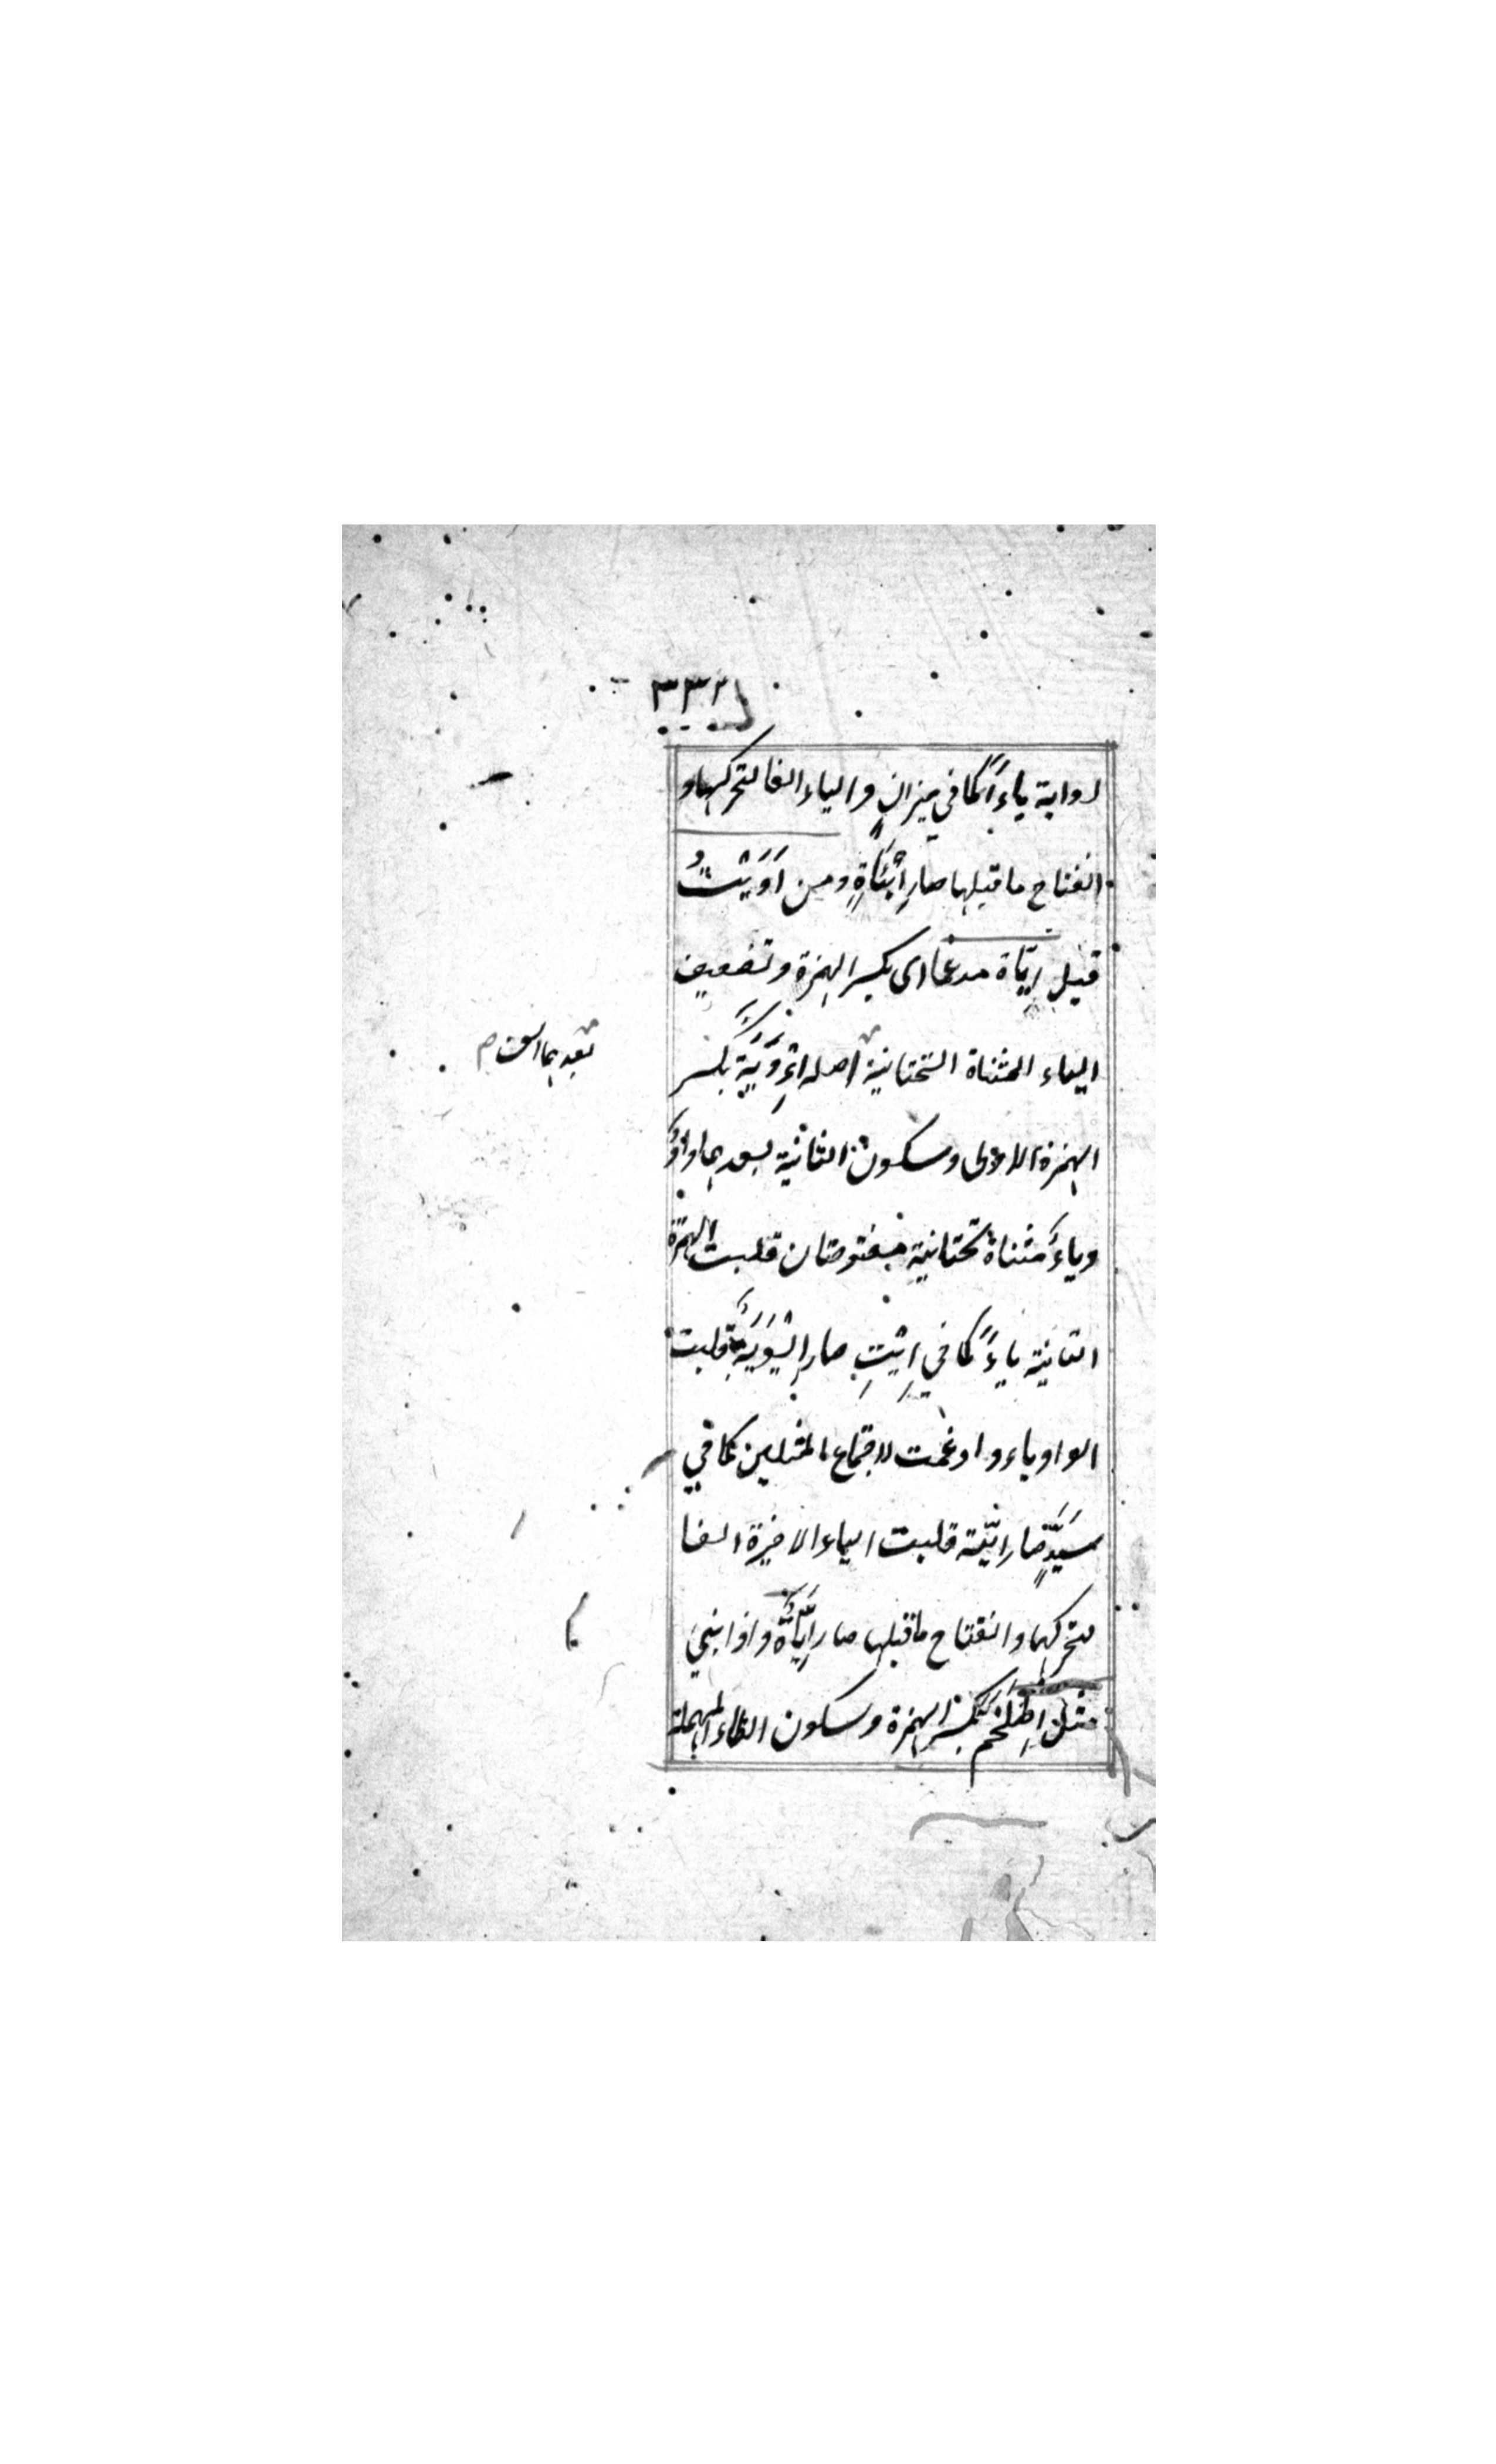 ٣٣٢
لروایة یاءً كما في میزانٍ والیاء الفا لتحركها و
انفتاح ما قبلها صار إِیْئَاةٍ ومن أَوَیْتُ
قیل إِیَّاة مدغما ای بكسر الهمزة وتضعیف
الیاء المثناة التحتانیة اصله ائْوَیَةٌ بكسر
الهمزة الاولی وسكون الثانیة بعدها واوٌ
ویاءٌ مثناة تحتانیة مفتوحتان قلبت الهمزة
الثانیة یاءً كما في اِیْتِ صار اِیْوَیَةٌ قلبت
الواو یاء وادغمت لاجتماع المثلین كما في
سَیِّدٍ صار اِیَّیَة قلبت الیاء الاخیرة الفا
لتحركها وانفتاح ماقبلها صار اِیَّاةٌ واذا بني
مثل اِطْلَخَمَّ بكسر الهمزة وسكون الطاء المهملة
بعدها الف